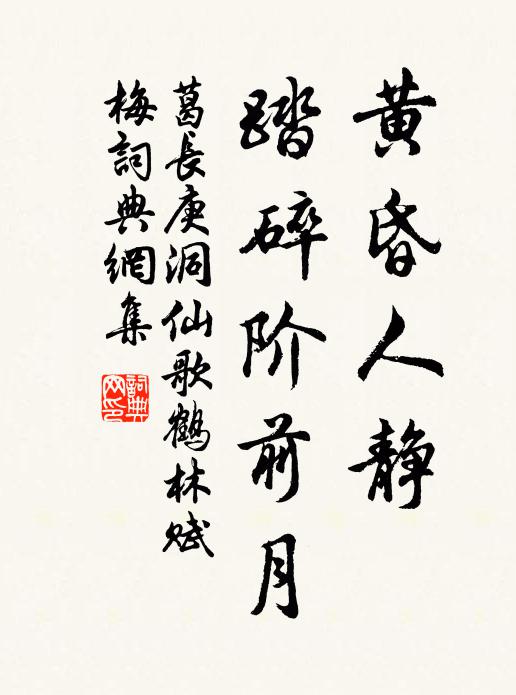 黄昏人静
踏碎阶前月
葛長庚洞仙歌鶴林賦
梅詞典網集
詞典
网印